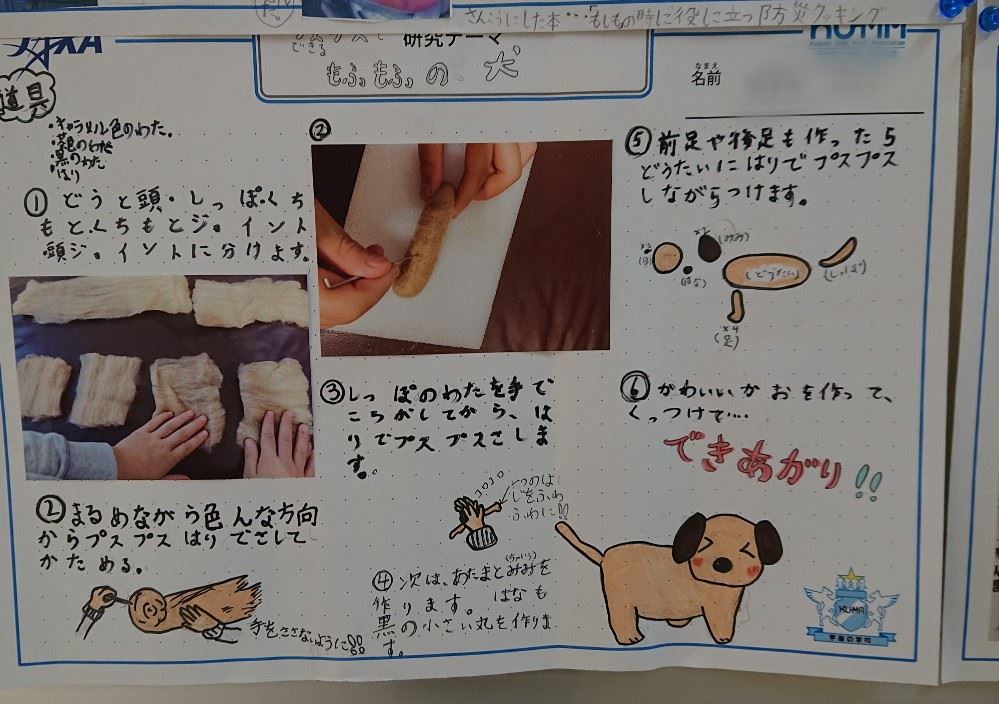 さんこうにした本…「もしもの時に役に立つ防災クッキング
KUMA
できる
研究テーマ
もふもふの犬
なまえ
名前
道具
・キャラメル色のわた。
・茶色のわた
・黒のわた
・はり
① どうと頭・しっぽ・くち
もと、くちもとジョイント
頭ジョイントに分けます。
② まるめながら色んな方向
からプスプスはりでさして
かためる。
手をささないように!!
②
③ しっぽのわたを手で
ころがしてから、は
りでプスプスさしま
す。
コロコロ
1つのは
しをふわ
ふわに!!
(ちゃいろ)
④ 次は、あたまとみみを
作ります。はなも
黒の小さい丸を作りま
す。
⑤ 前足や後足も作ったら
どうたいにはりでプスプス
しながらつけます。
×2
(みみ)
(はな)
(どうたい)
(しっぽ)
×4
(足)
⑥ かわいいかおを作って、
くっつけて…
できあがり!!
KUMA
宇宙の学校